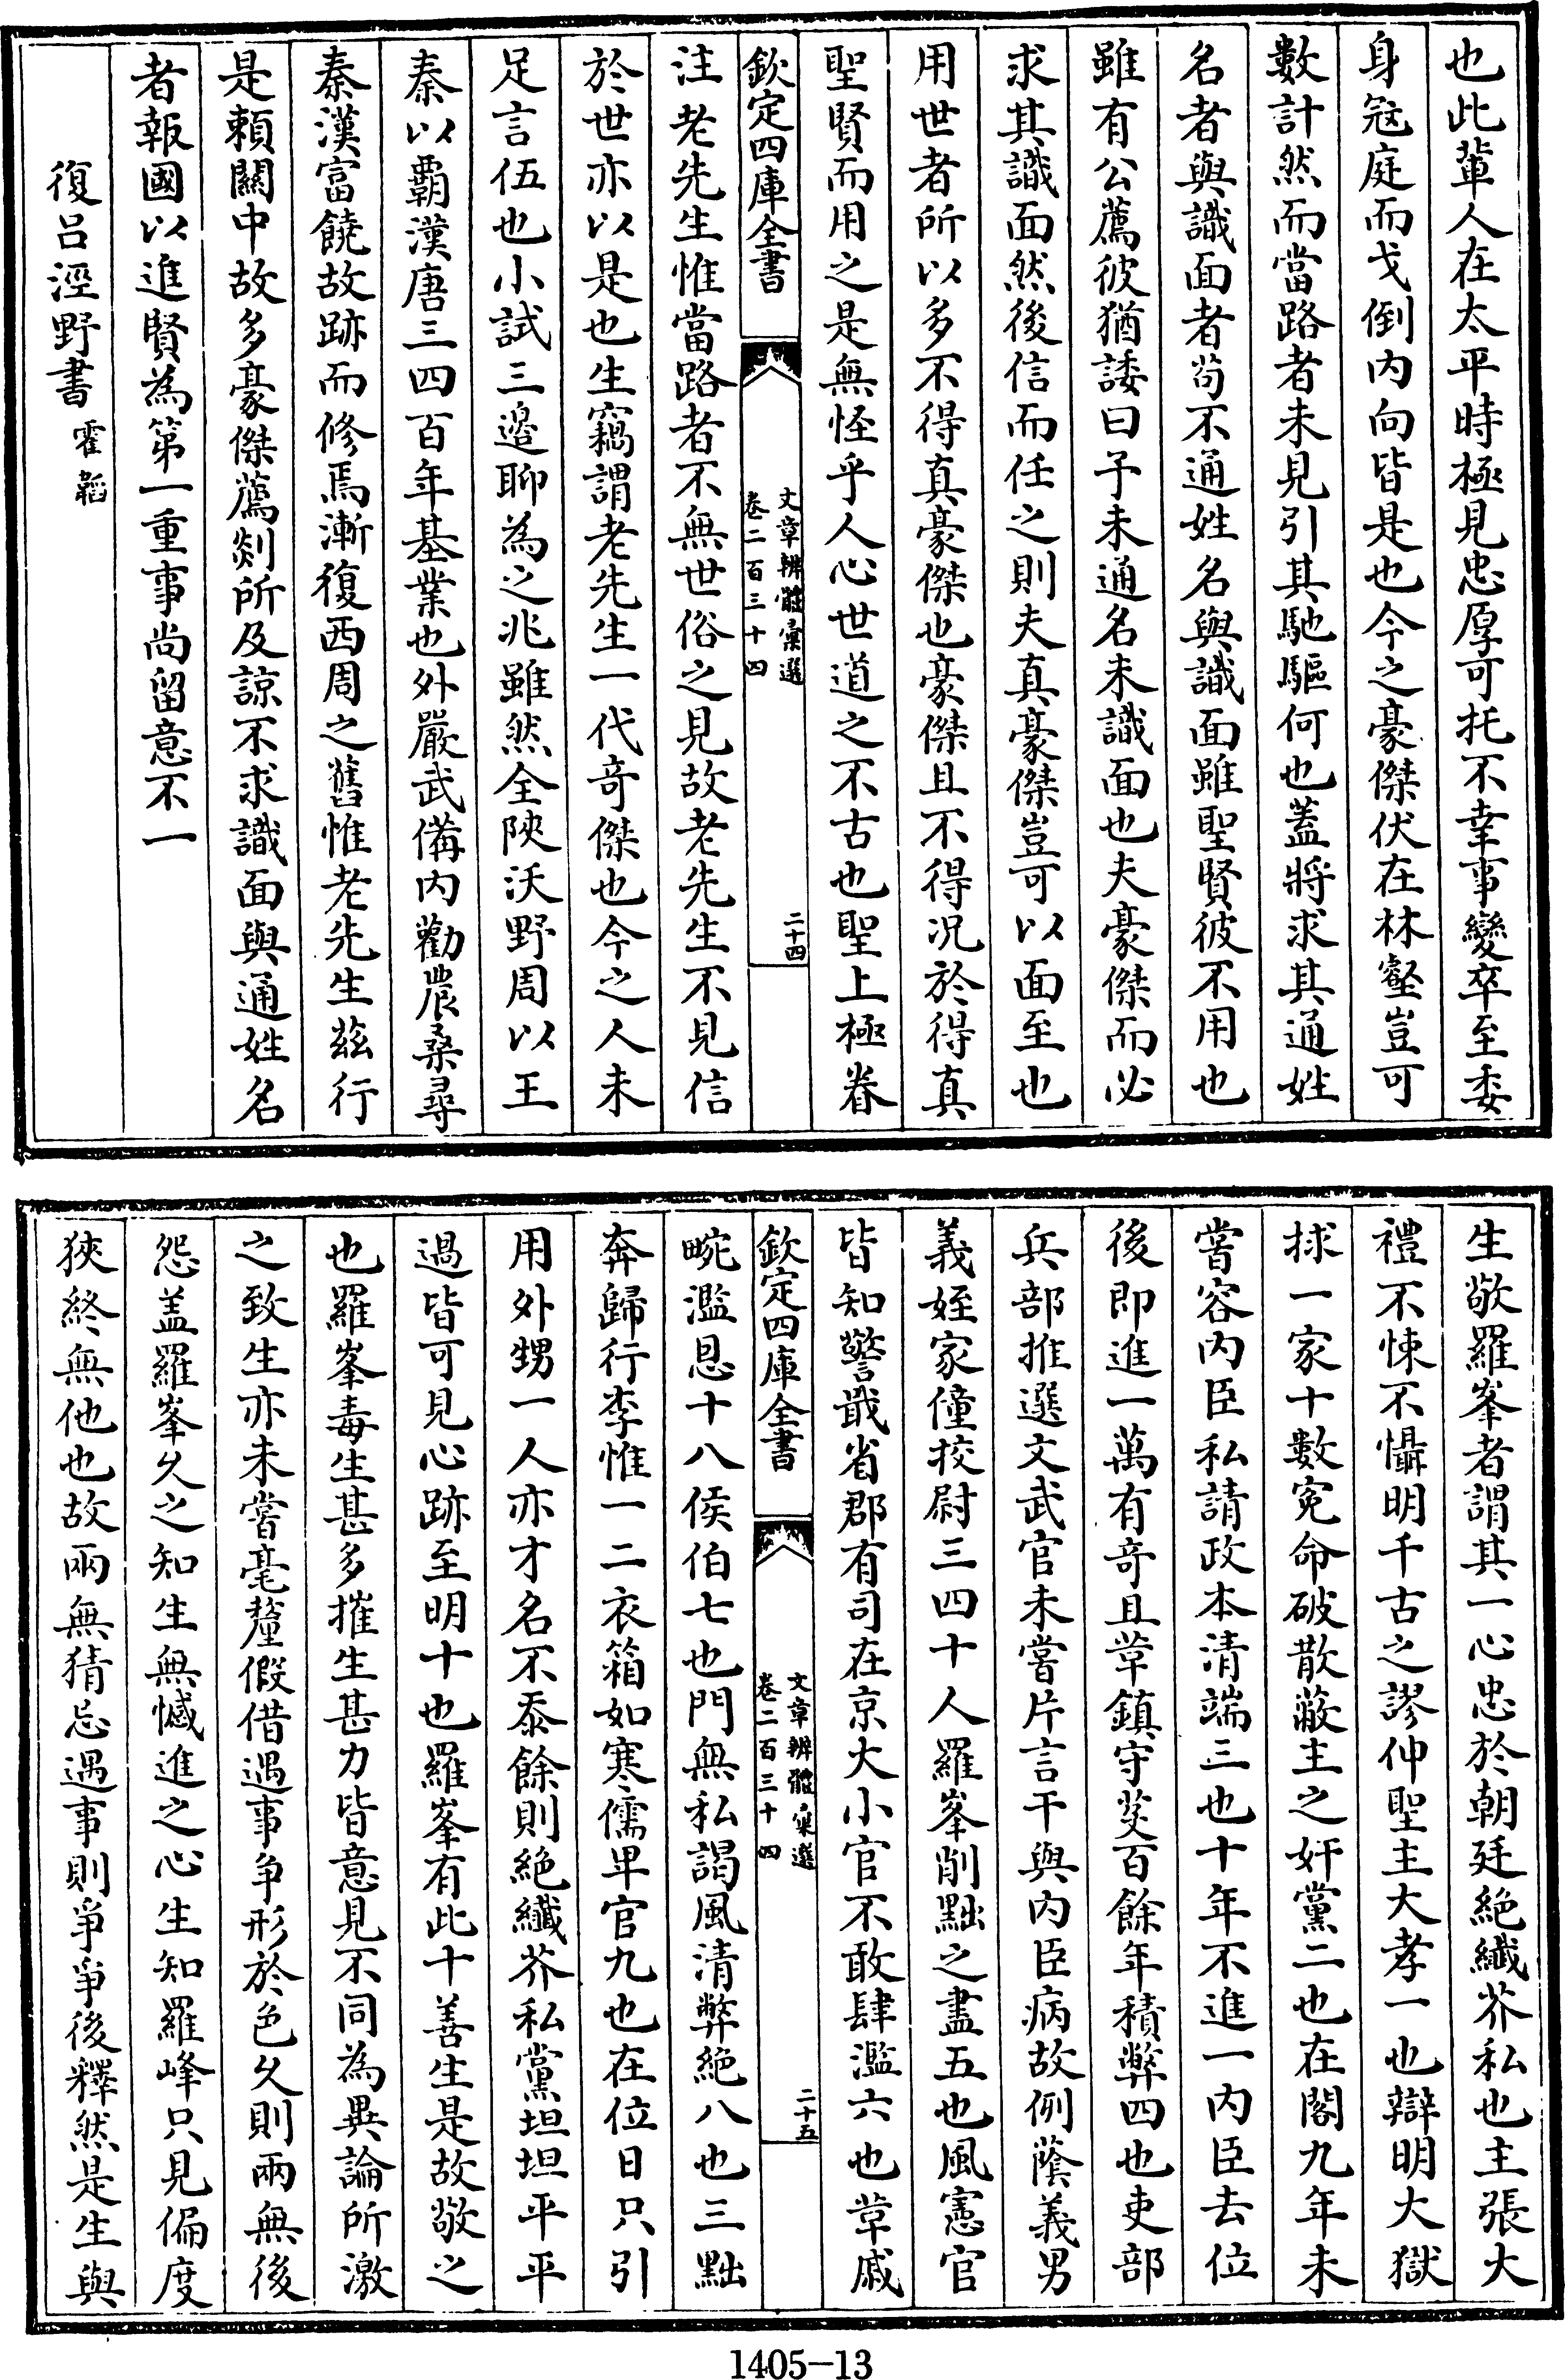 也此輩人在太平時極見忠厚可托不幸事變卒至委
身冦庭而戈倒内向皆是也今之豪傑伏在林壑豈可
數計然而當路者未見引其馳驅何也蓋將求其通姓
名者與識面者茍不通姓名與識面雖聖賢彼不用也
雖有公薦彼猶諉曰予未通名未識面也夫豪傑而必
求其識面然後信而任之則夫真豪傑豈可以面至也
用世者所以多不得真豪傑也豪傑且不得况於得真
聖賢而用之是無怪乎人心世道之不古也聖上極眷
欽定四庫全書
文章辨體彚選
卷二百三十四
二十四
注老先生惟當路者不無世俗之見故老先生不見信
於世亦以是也生竊謂老先生一代竒傑也今之人未
足言伍也小試三邉聊為之兆雖然全陜沃野周以王
秦以覇漢唐三四百年基業也外嚴武備内勸農桑尋
秦漢富饒故跡而修焉漸復西周之舊惟老先生兹行
是頼關中故多豪傑薦剡所及諒不求識面與通姓名
者報國以進賢為第一重事尚留意不一
復吕涇野書 霍韜
生敬羅峯者謂其一心忠於朝廷絶纎芥私也主張大
禮不悚不懾明千古之謬仲聖主大孝一也辯明大獄
捄一家十數寃命破散蔽主之奸黨二也在閣九年未
嘗容内臣私請政本清端三也十年不進一内臣去位
後即進一萬有竒且革鎮守茇百餘年積弊四也吏部
兵部推選文武官未嘗片言干與内臣病故例蔭義男
義姪家僮挍尉三四十人羅峯削黜之盡五也風憲官
皆知警戢省郡有司在京大小官不敢肆濫六也革戚
欽定四庫全書
文章辨體彚選
卷二百三十四
二十五
畹濫恩十八侯伯七也門無私謁風清弊絶八也三黜
奔歸行李惟一二衣箱如寒儒卑官九也在位日只引
用外甥一人亦才名不忝餘則絶纎芥私黨坦坦平平
過皆可見心跡至明十也羅峯有此十善生是故敬之
也羅峯毒生甚多摧生甚力皆意見不同為異論所激
之致生亦未嘗毫釐假借遇事争形於色久則兩無後
怨盖羅峯久之知生無憾進之心生知羅峰只見偏度
狹終無他也故兩無猜忌遇事則爭爭後釋然是生與
1405-13